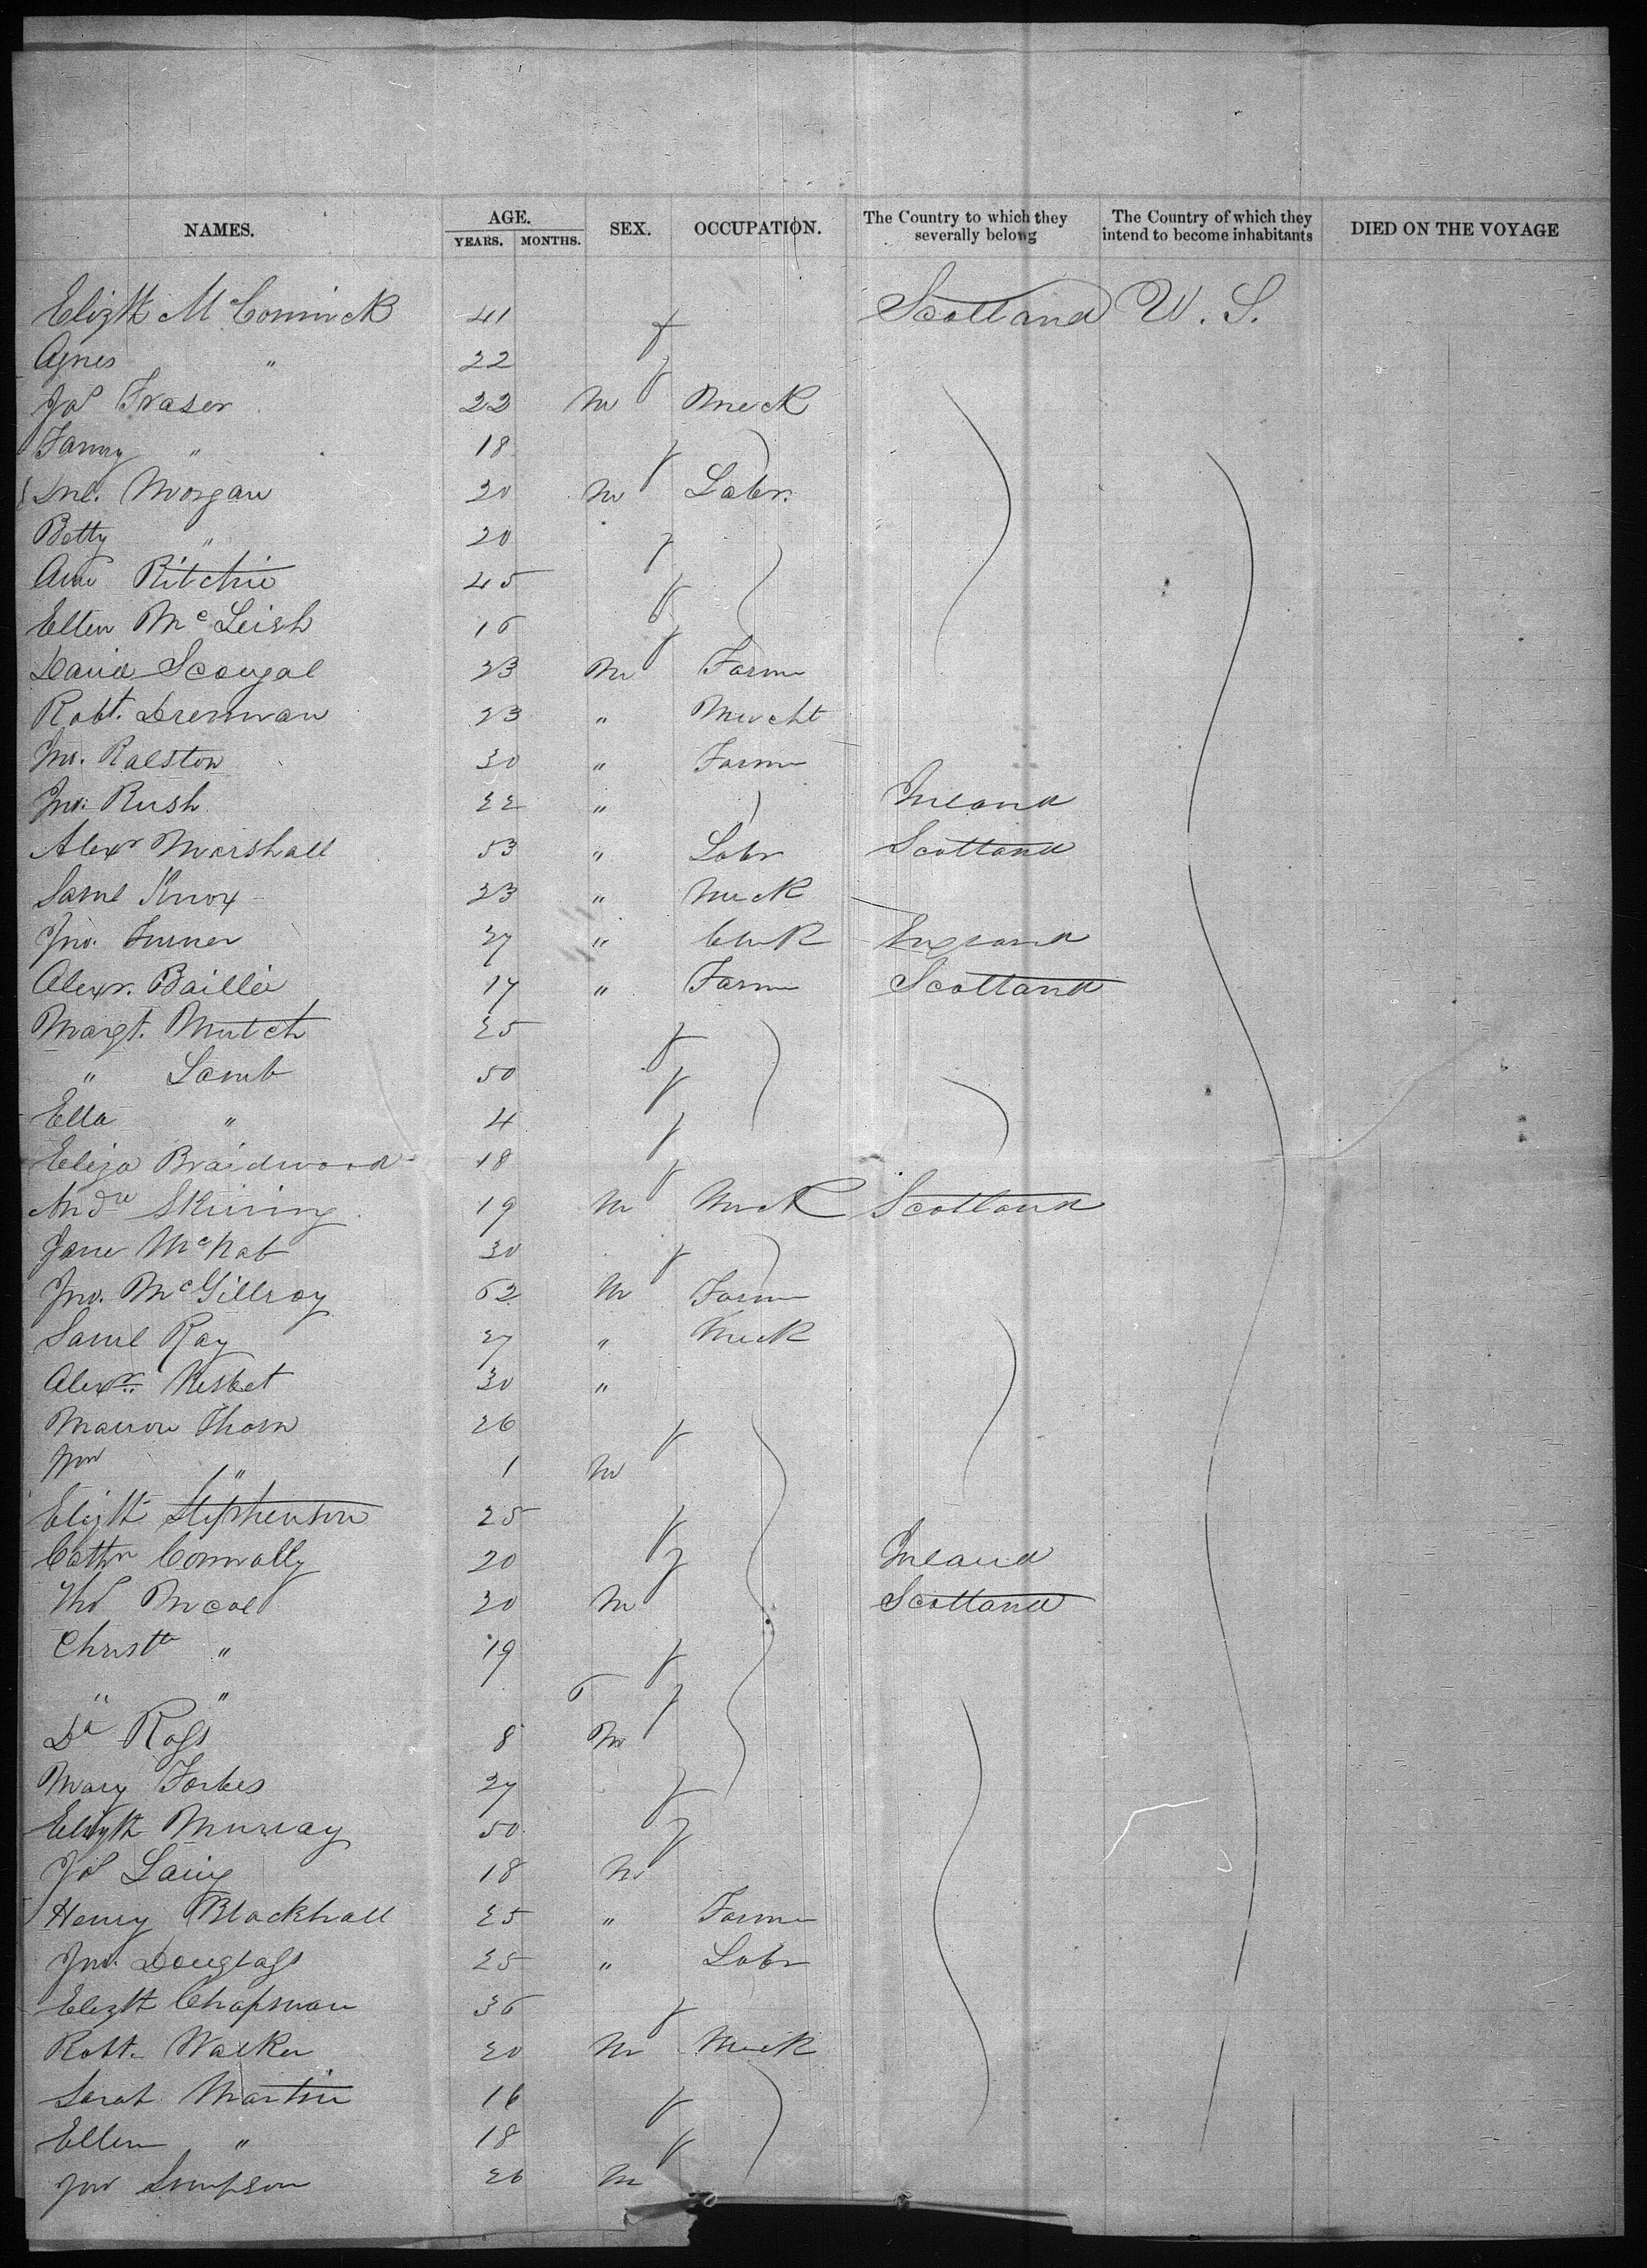 NAMES. AGE. YEARS. MONTHS. SEX. OCCUPATION. The Country to which they severally belong The Country of which they intend to become inhabitants DIED ON THE VOYAGE
Elizth McCormick 41 f Scotland U. S.
Agnes " 22 f
Jas Fraser 22 M Meck
Fanny " 18 f
Morgan 20 M Labr.
Betty " 20 f
Ann Ritchie 45 f
Ellen McLeish 16 f
David Scougal 23 M Farm
Robt. Drennan 23 " Mercht
Jno. Ralston 30 " Farm
Jno. Rush 22 " Ireland
Alexr Marshall 53 " Labr Scotland
Saml Knox 23 " Meck
Jno. Turner 27 " Clerk England
Alexr. Baillie 17 " Farm Scotland
Margt. Mutch 25 f
" Lamb 50 f
Ella " 4 f
Eliza Braidwood 18 f
Andw Skirving 19 M Meck Scotland
Jane McNab 30 f
Jno. McGillroy 62 M Farm
Saml Ray 27 " Meck
Alexr. Nesbet 30 "
Marion Thom 26 f
Wm " 1 M
Elizth Stephenson 25 f
Cathn Connally 20 f Ireland
Ths McCol 20 M Scotland
Christn " 19 f
" " 6 f
Dd Ross 8 M
Mary Forbes 27 f
Elizth Murray 50 f
Js Laing 18 M
Henry Blackhall 25 " Farm
Jno. Douglass 25 " Labr
Elizth Chapman 36 f
Robt. Walker 20 M Meck
Sarah Martin 16 f
Ellen " 18 f
Jno Simpson 26 M